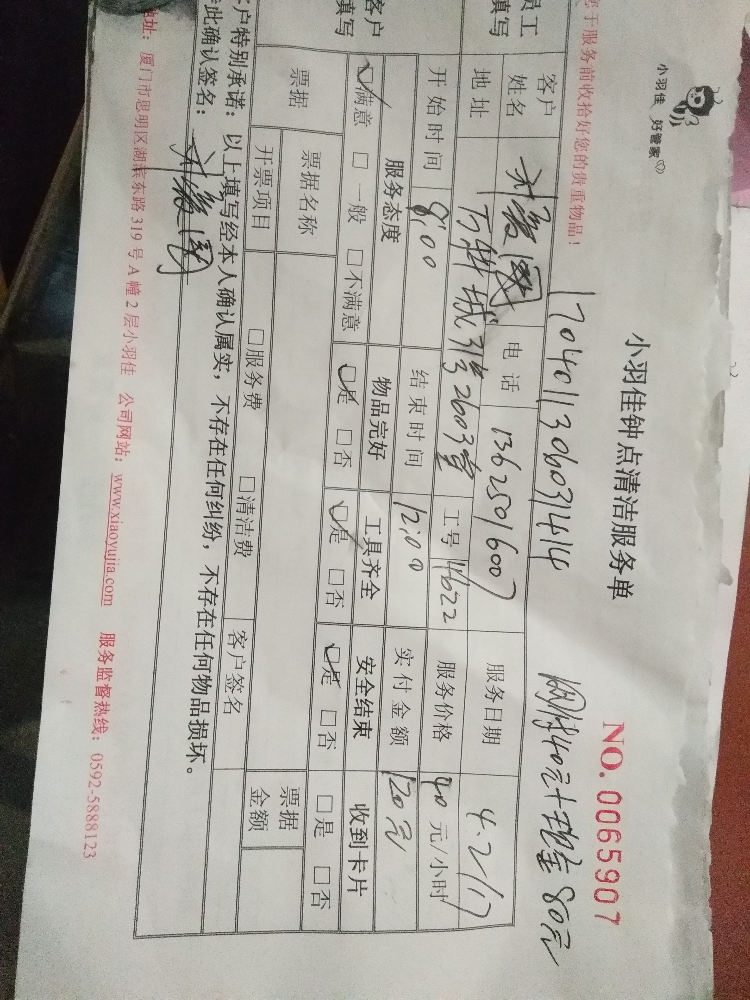 小羽佳 好管家
小羽佳钟点清洁服务单
NO.0065907
于服务前收拾好您的贵重物品！
1704011306031414
网付40元+现金80元
员工填写
客户姓名
电话
13625016007
服务日期
4.2/17
地址
万科城3号2603室
工号
14622
服务价格
40元/小时
开始时间
8:00
结束时间
12:00
实付金额
120元
客户填写
服务态度
物品完好
工具齐全
安全结束
收到卡片
□满意 □一般 □不满意
□是 □否
□是 □否
□是 □否
□是 □否
票据
票据名称
票据金额
开票项目
□服务费 □清洁费
客户签名
户特别承诺：以上填写经本人确认属实，不存在任何纠纷，不存在任何物品损坏。
此确认签名：
地址：厦门市思明区湖滨东路319号A幢2层小羽佳 公司网站：www.xiaoyujia.com 服务监督热线：0592-5888123